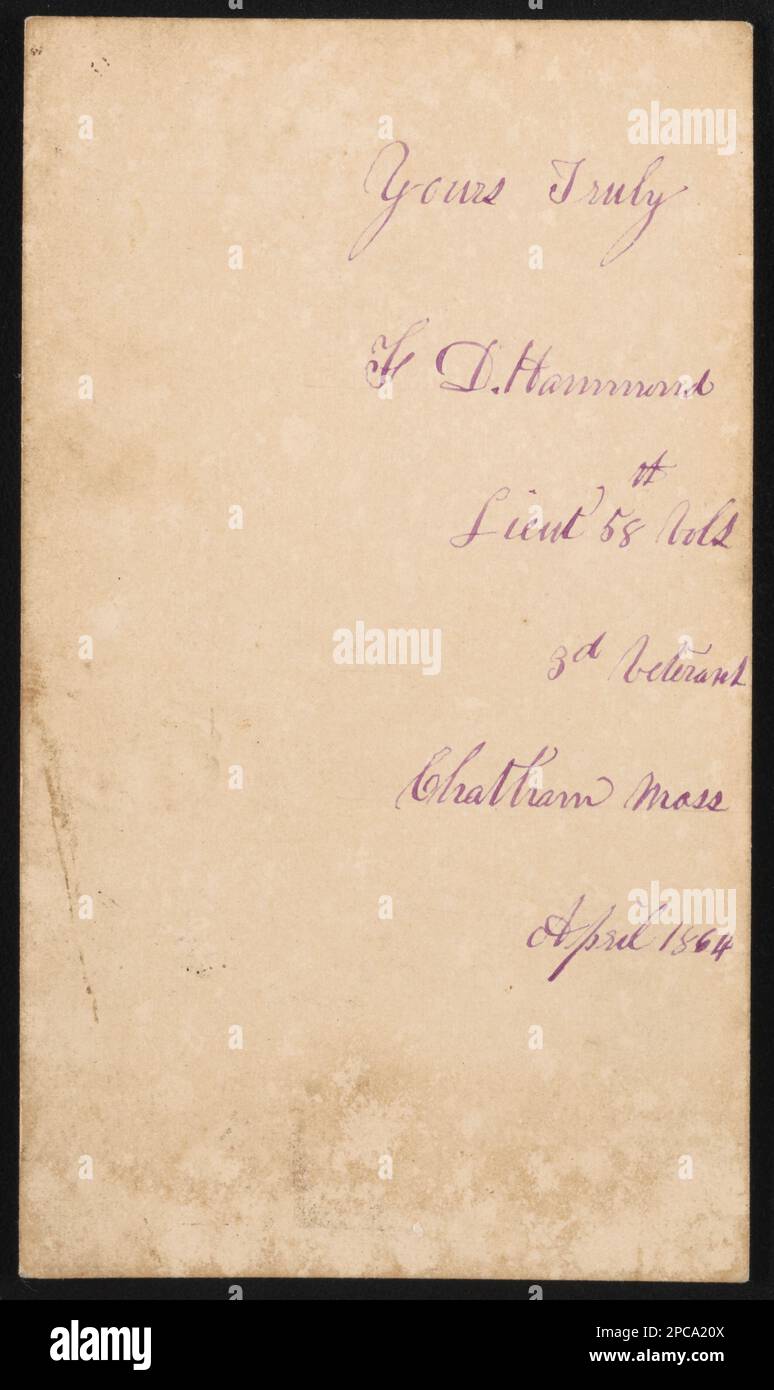 Yours Truly
F D. Hammond
Lieut 58th Vols
3d Veterans
Chatham Mass
April 1864
alamy
alamy
alamy
alamy
Image ID: 2PCA20X
www.alamy.com